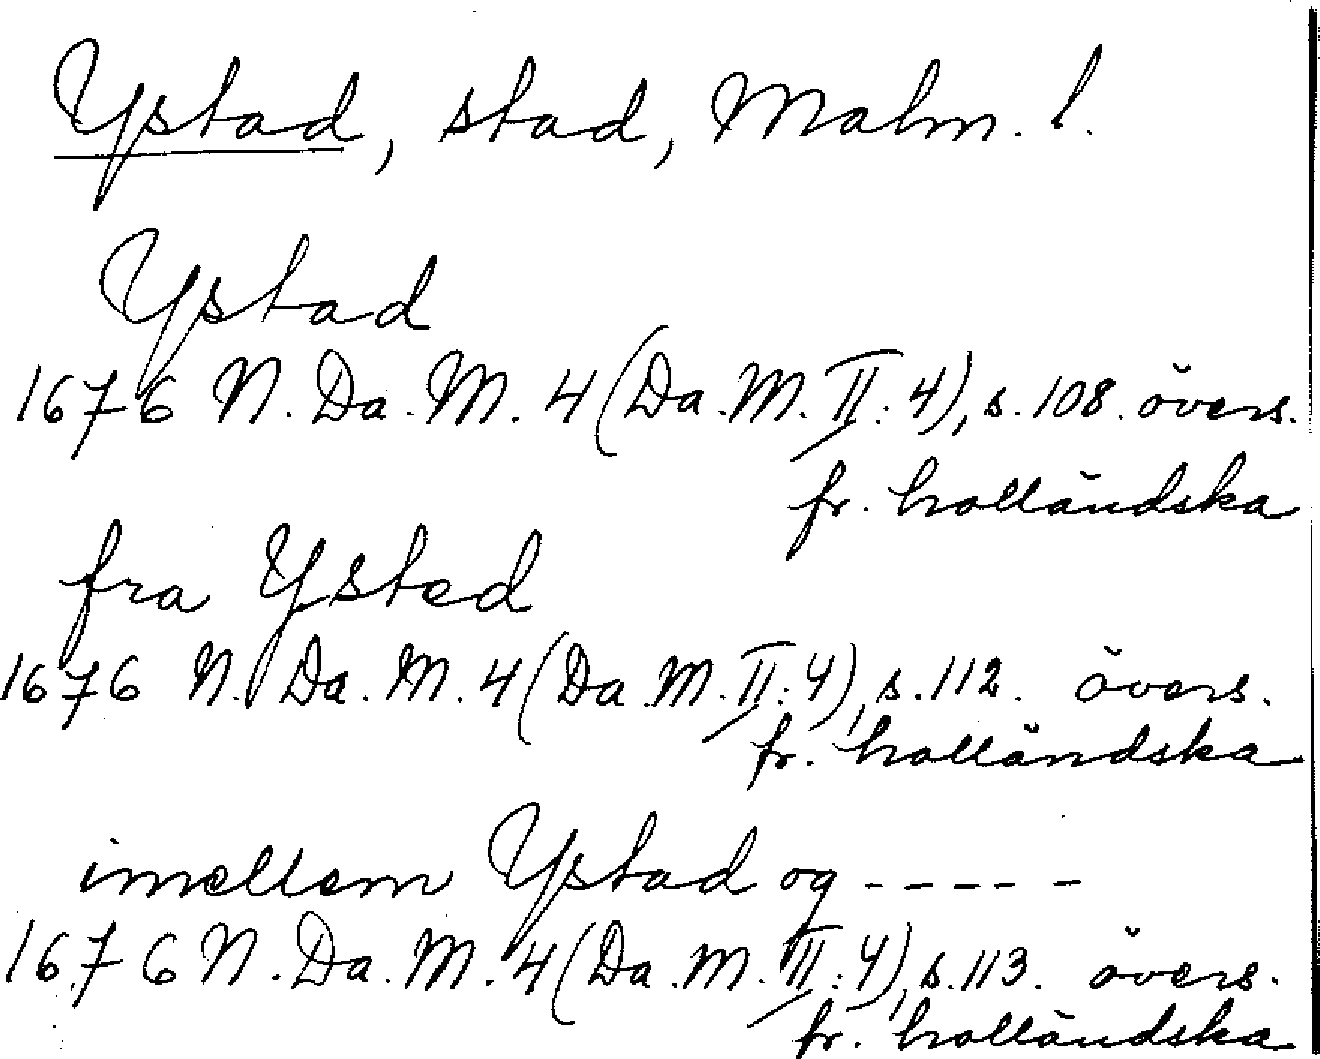 Ystad, stad, Malm. l.
Ystad
1676 N. Da. M. 4 (Da. M. II: 4), s. 108. övers.
fr. holländska
fra Ysted
1676 N. Da. M. 4 (Da. M. II: 4), s. 112. övers.
fr. holländska
imellem Ystad og - - - - -
1676 N. Da. M. 4 (Da. M. II: 4), s. 113. övers.
fr. holländska